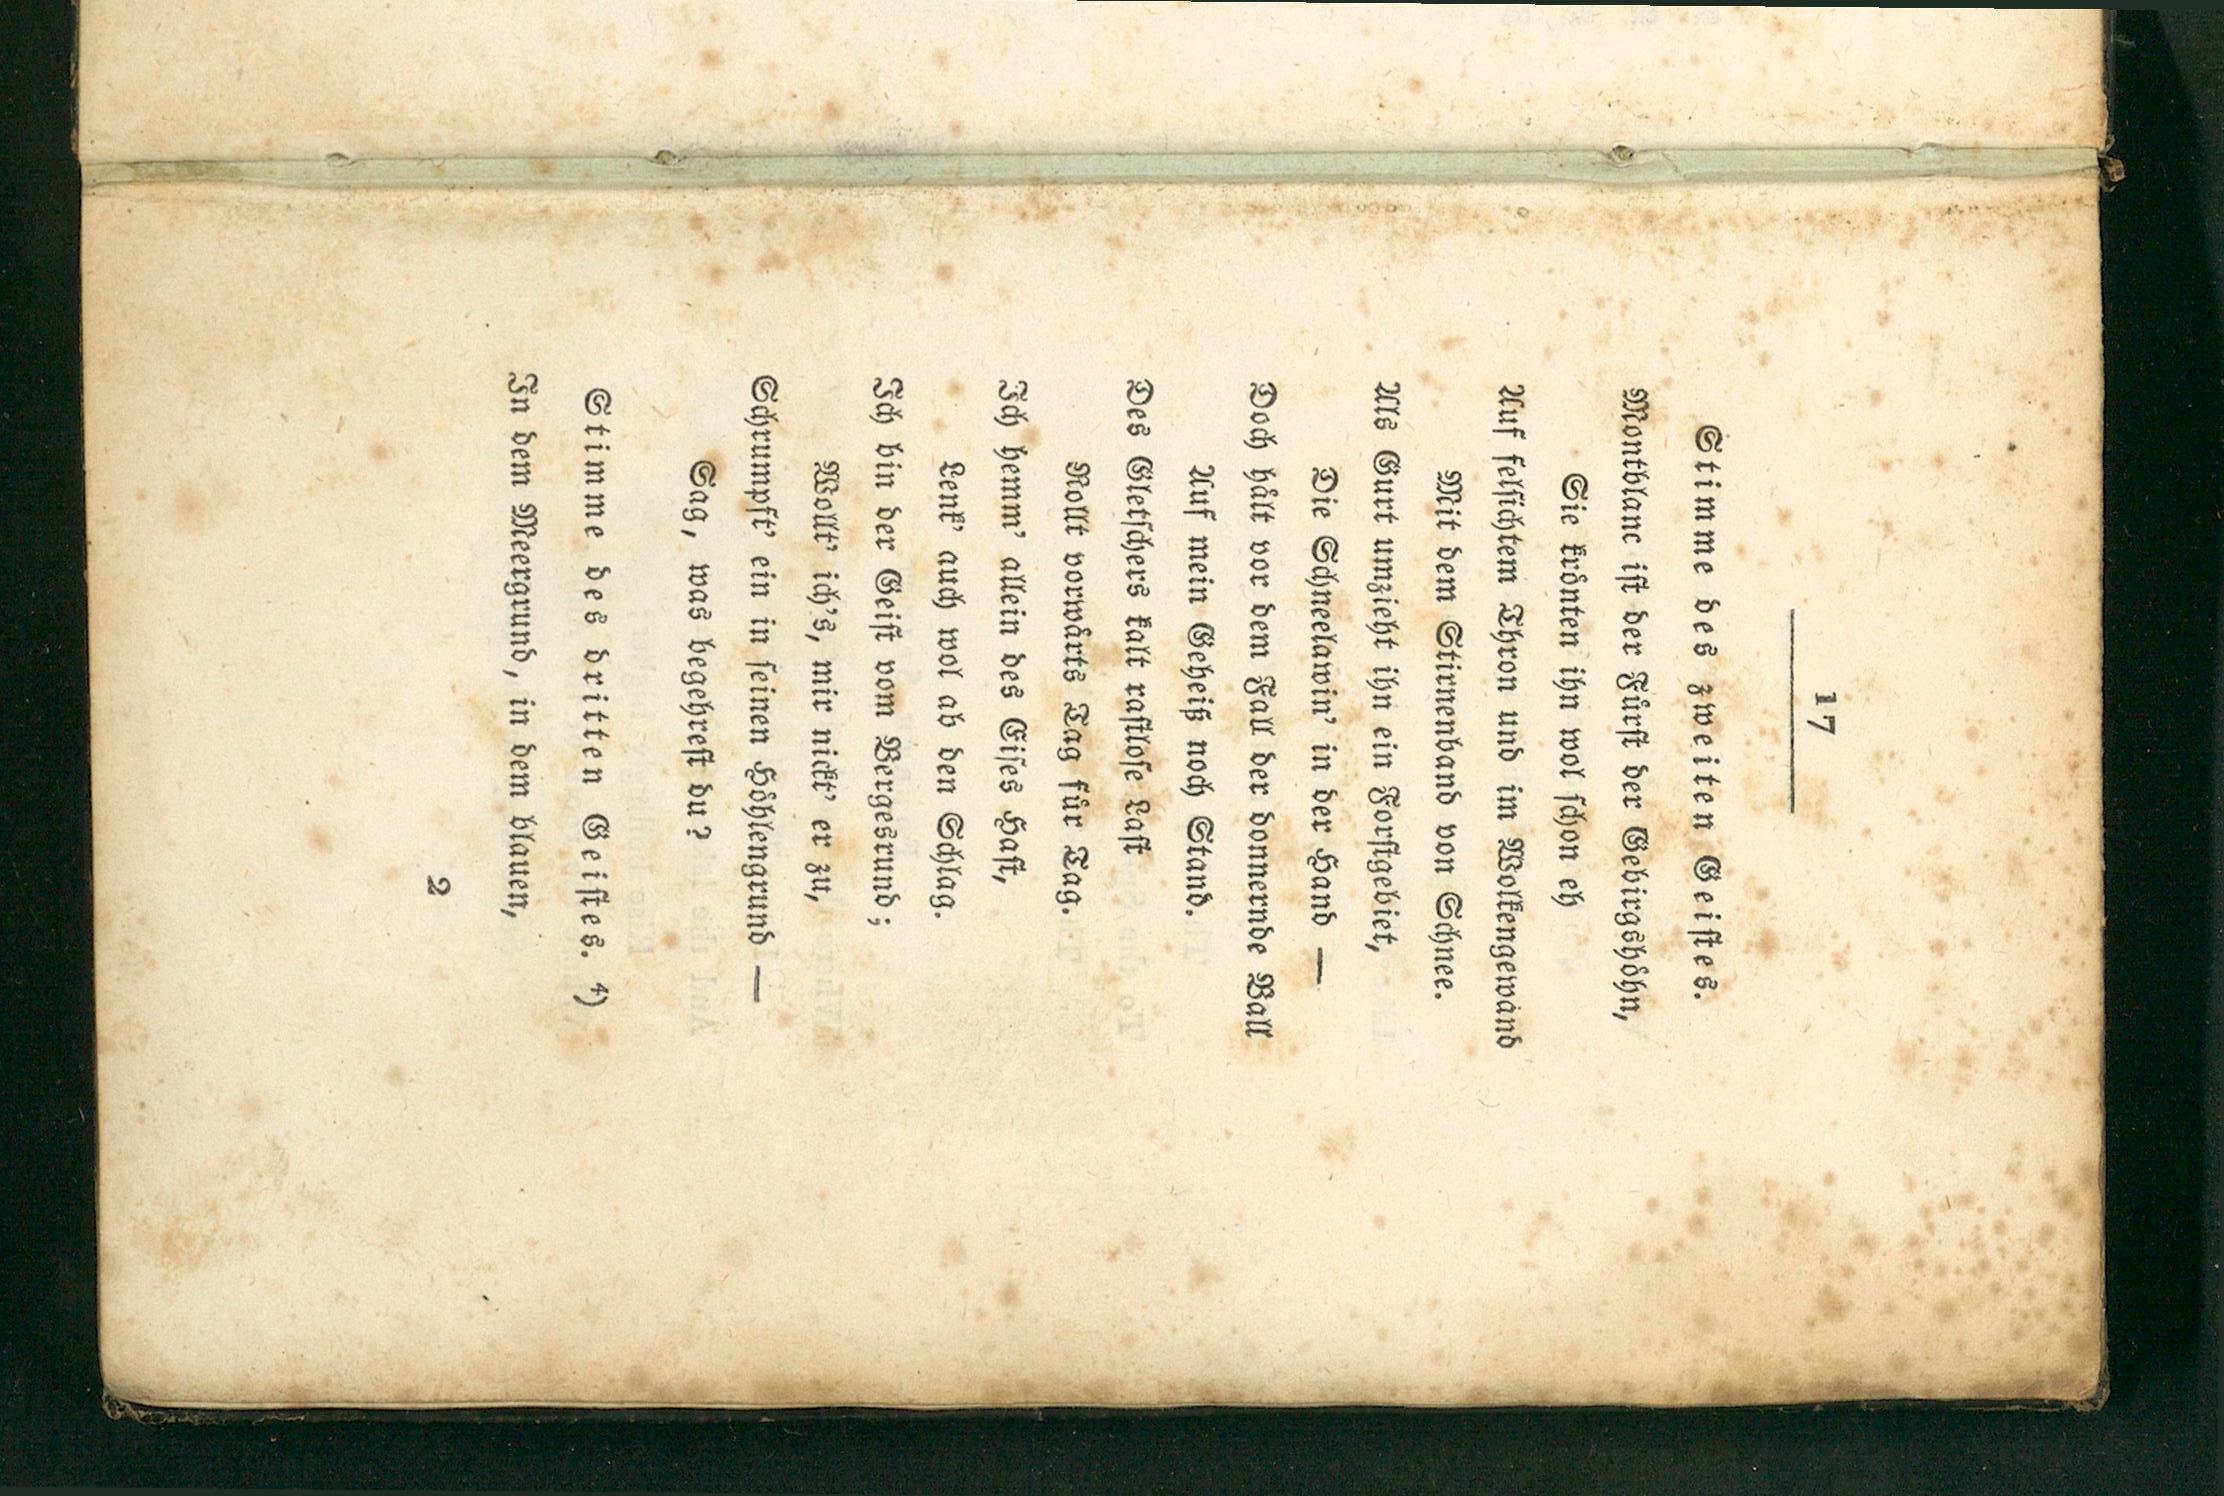 17
Stimme des zweiten Geiſtes.
Montblanc iſt der Fürſt der Gebirgshöhn,
Sie krönten ihn wol ſchon eh
Auf felſichtem Thron und im Wolkengewand
Mit dem Stirnenband von Schnee.
Als Gurt umzieht ihn ein Forſtgebiet,
Die Schneelawin’ in der Hand —
Doch hält vor dem Fall der donnernde Ball
Auf mein Geheiß noch Stand.
Des Gletſchers kalt raſtloſe Laſt
Rollt vorwärts Tag für Tag.
Ich hemm’ allein des Eiſes Haſt,
Lenk’ auch wol ab den Schlag.
Ich bin der Geiſt vom Bergesrund;
Wollt’ ich’s, mir nickt’ er zu,
Schrumpft’ ein in ſeinen Höhlengrund —
Sag, was begehreſt du?
Stimme des dritten Geiſtes. ⁴)
In dem Meergrund, in dem blauen,
2